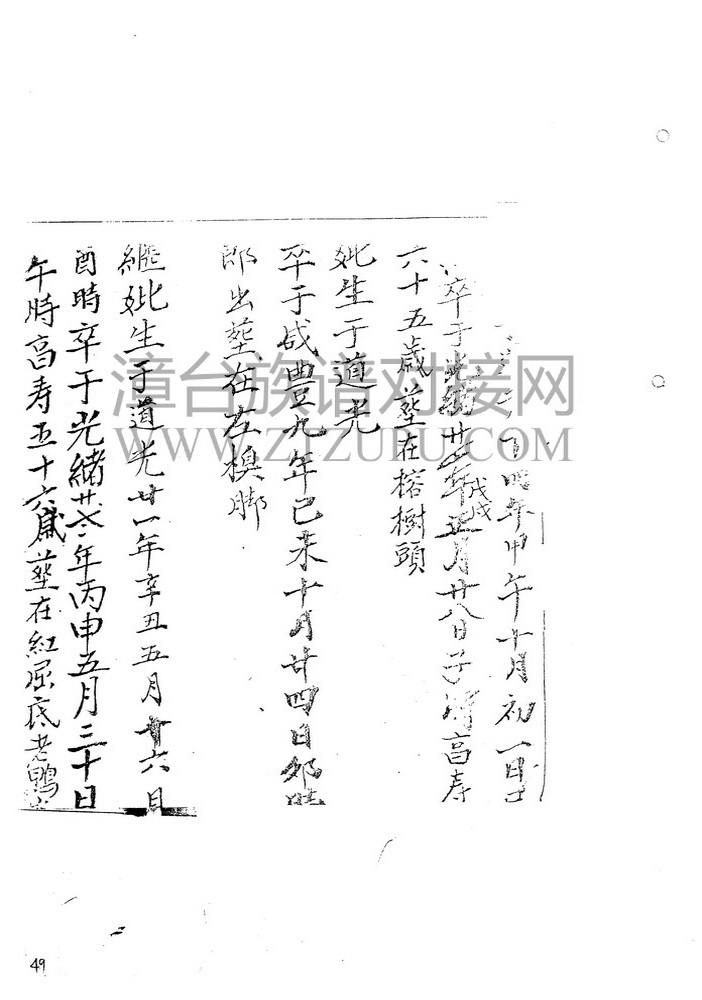 四年甲午十月初一日
卒于光緒廿四年戊戌正月廿八日子時高寿
六十五歲塋在榕樹頭
妣生于道光
卒于咸豐九年己未十月廿四日卯時
即出塋在左模脚
繼妣生于道光廿一年辛丑五月廿六日
酉時卒于光緒廿二年丙申五月三十日
午時高寿五十六歲塋在紅屈底老鴨
漳台族谱对接网
WWW.ZTZUPU.COM
49